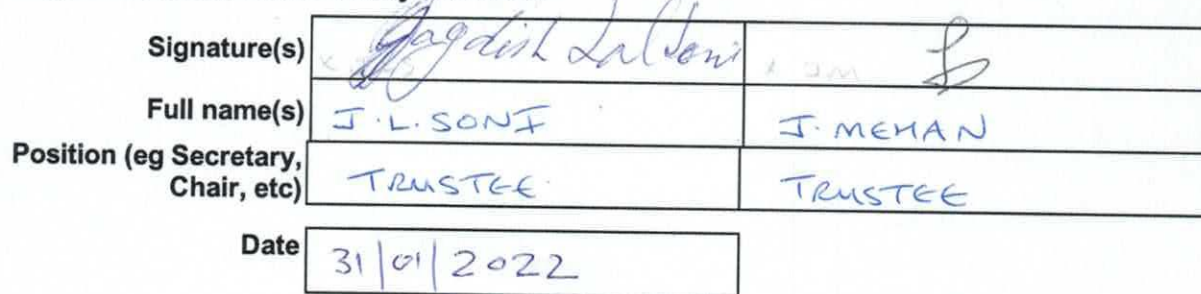 Signature(s) Jagdish Lal Soni
Full name(s) J.L. SONI J. MEHAN
Position (eg Secretary, Chair, etc) TRUSTEE TRUSTEE
Date 31/01/2022